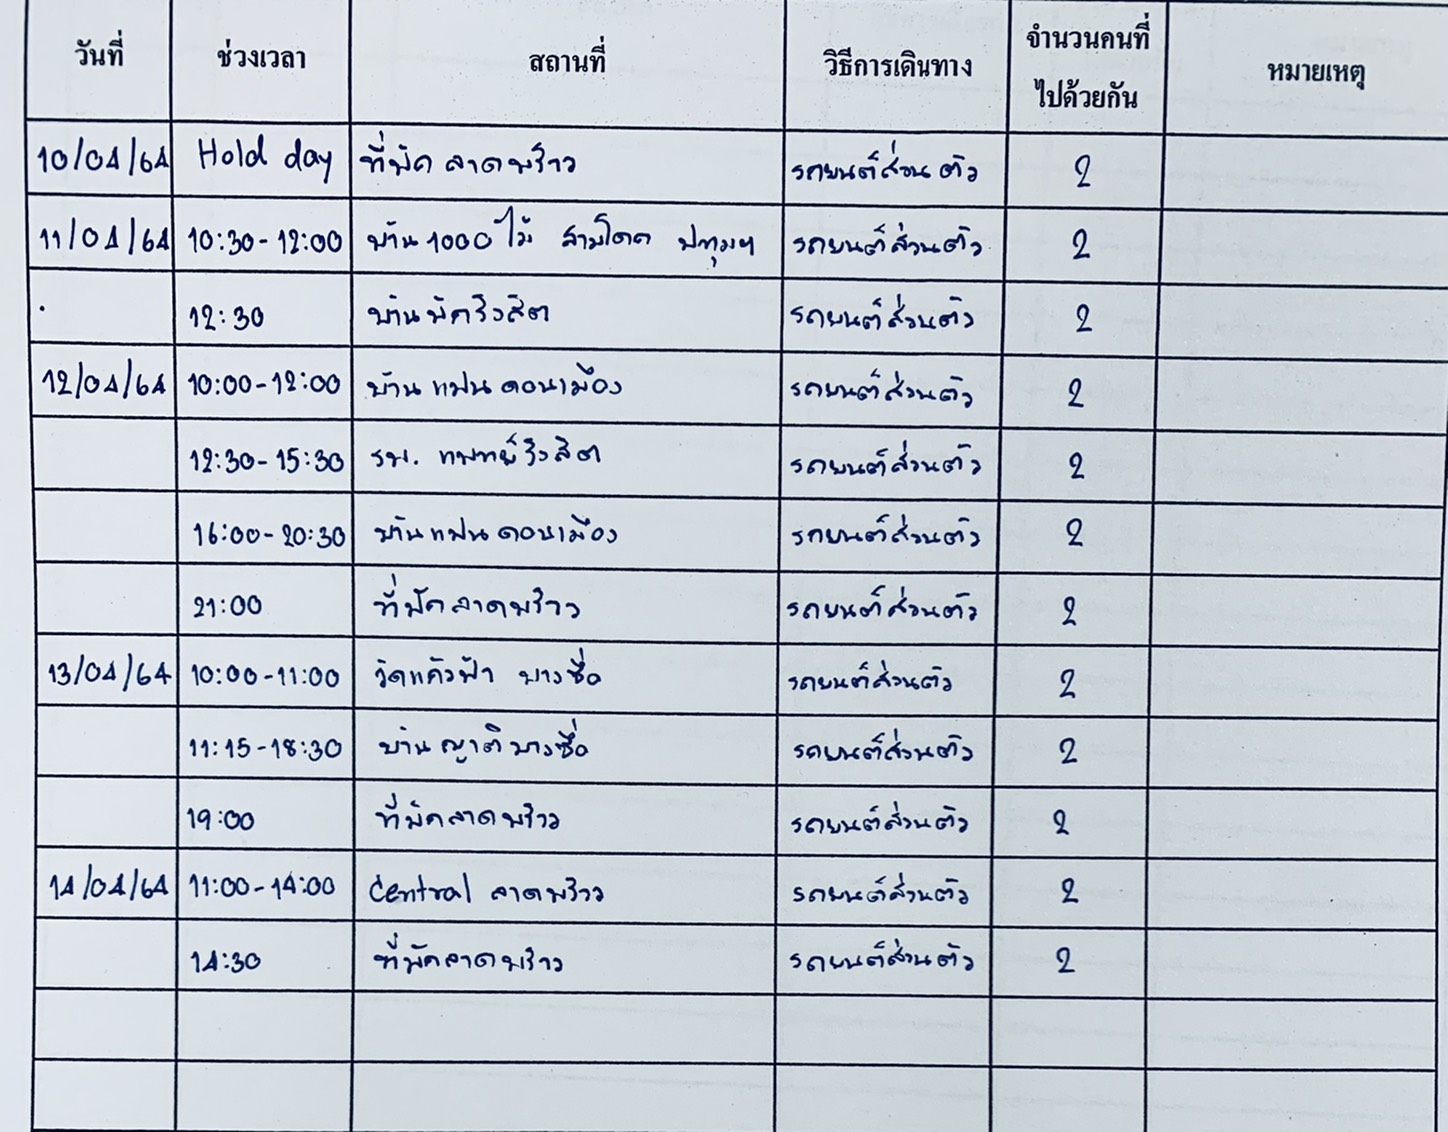 วันที่ ช่วงเวลา สถานที่ วิธีการเดินทาง จำนวนคนที่ไปด้วยกัน หมายเหตุ
10/04/64 Hold day ที่พัก ลาดพร้าว รถยนต์ส่วนตัว 2
11/04/64 10:30-12:00 บ้าน 1000 ไม้ สามโคก ปทุมฯ รถยนต์ส่วนตัว 2
12:30 บ้านพักรังสิต รถยนต์ส่วนตัว 2
12/04/64 10:00-12:00 บ้านแฟนดอนเมือง รถยนต์ส่วนตัว 2
12:30-15:30 รพ. แพทย์รังสิต รถยนต์ส่วนตัว 2
16:00-20:30 บ้านแฟนดอนเมือง รถยนต์ส่วนตัว 2
21:00 ที่พักลาดพร้าว รถยนต์ส่วนตัว 2
13/04/64 10:00-11:00 วัดแก้วฟ้า บางซื่อ รถยนต์ส่วนตัว 2
11:15-18:30 บ้านญาติบางซื่อ รถยนต์ส่วนตัว 2
19:00 ที่พักลาดพร้าว รถยนต์ส่วนตัว 2
14/04/64 11:00-14:00 Central ลาดพร้าว รถยนต์ส่วนตัว 2
14:30 ที่พักลาดพร้าว รถยนต์ส่วนตัว 2